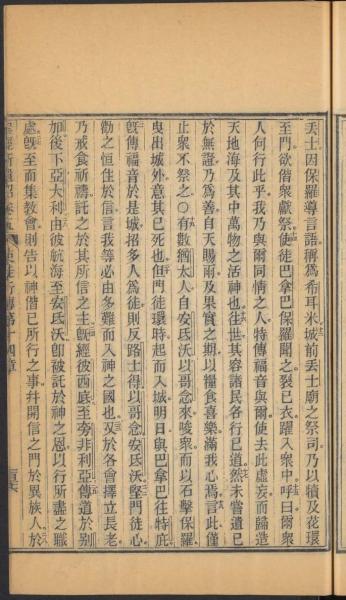 丟士因保羅導言語稱爲希耳米城前丟士廟之祭司乃以犢及花環
至門欲偕衆獻祭使徒巴拿巴保羅聞之裂已衣躍入衆中呼曰爾衆
人何行此乎我乃與爾同情之人特傳福音與爾使去此虛妄而歸造
天地海及其中萬物之活神也往世其容諸民各行已道然未嘗遺已
於無證乃爲善自天賜雨及果實之期以糧食喜樂滿我心焉言此僅
止衆不祭之〇有數猶太人自安氐沃以哥念來唆衆而以石擊保羅
曳出城外意其已死也但門徒環時起而入城明日與巴拿巴往特庇
旣傳福音於是城招多人爲徒則反路士得以哥念安氐沃堅門徒心
勸之恒住於信言我等必由多難而入神之國也又於各會擇立長老
乃戒食祈禱託之於其所信之主旣經彼西底至旁非利亞傳道於别
加後下亞大利由彼航海至安氐沃卽被託於神之恩以行所盡之職
處旣至而集敎會則告以神偕已所行之事幷開信之門於異族人於
使徒行傳第十四章